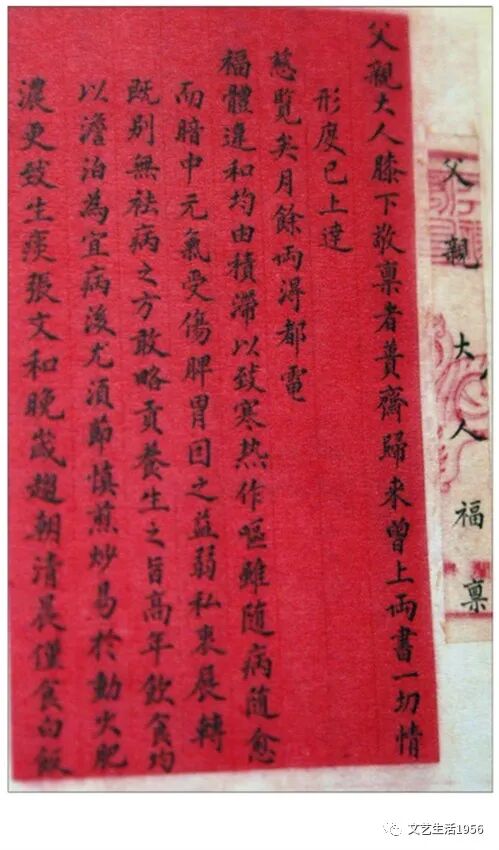 父親大人膝下敬禀者賫齋歸来曾上两書一切情
形度已上達
慈覧矣月餘两淂都電
福體違和均由積滯以致寒热作嘔雖随病随愈
而暗中元氣受傷脾胃因之益弱私衷展轉
既别無祛病之方敢略貢養生之旨高年飲食均
以澹泊為宜病後尤須節慎煎炒易於動火肥
濃更致生痰張文和晚嵗趨朝清晨僅食白飯
父親大人福禀
文艺生活1956